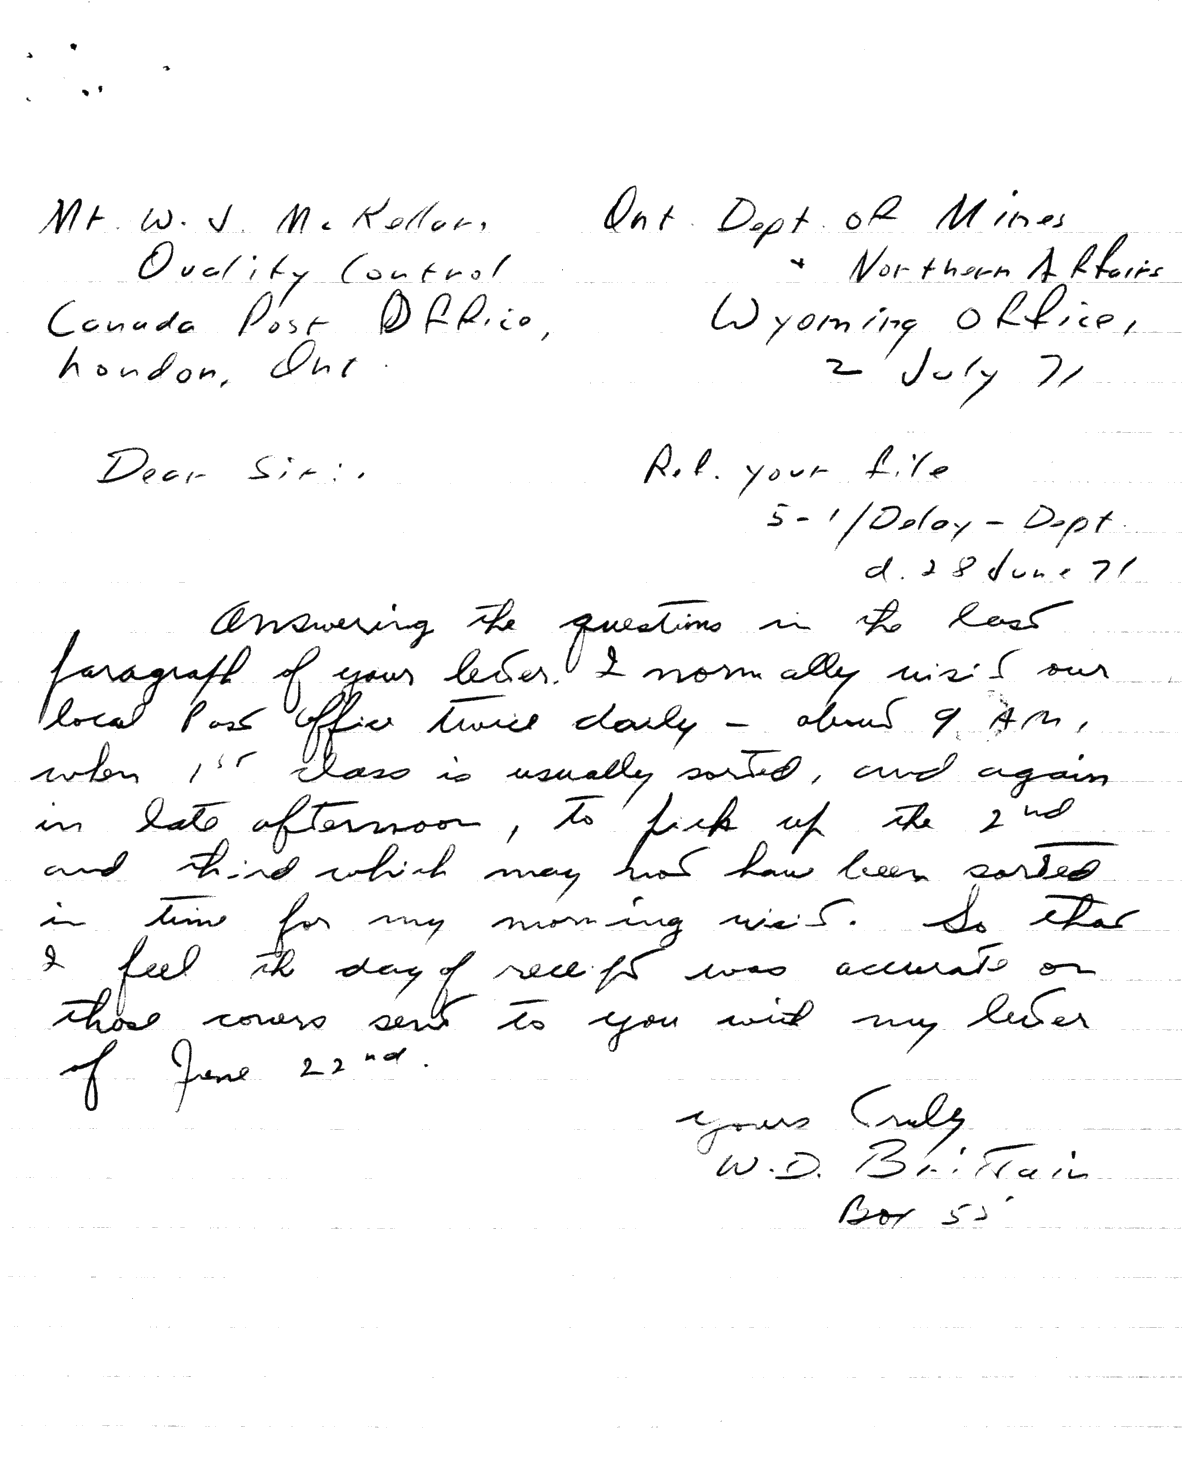 Mr. W. J. McKellar,
Quality Control
Canada Post Office,
London, Ont.
Ont. Dept. of Mines
+ Northern Affairs
Wyoming Office,
2 July 71
Dear Sir:.
Ref. your file
5-1/Delay - Dept.
d. 28 June 71
Answering the questions in the last
paragraph of your letter. I normally visit our
local Post Office twice daily - about 9 AM,
when 1st class is usually sorted, and again
in late afternoon, to pick up the 2nd
and third which may not have been sorted
in time for my morning visit. So that
I feel the day of receipt was accurate on
those covers sent to you with my letter
of June 22nd.
yours truly
W.D. Brittain
Box 55